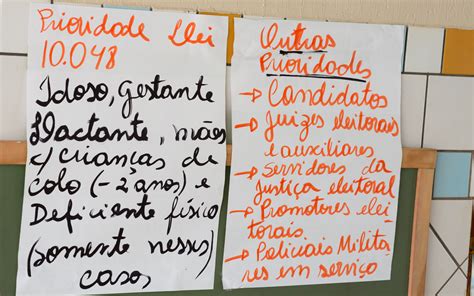 Prioridade Lei
10.048
Idoso, gestante
Lactante, mães
c/ crianças de
colo (-2 anos) e
Deficiente físico
(somente nesses)
casos
Outras
Prioridades
→ Candidatos
→ Juizes eleitorais
e auxiliares
→ Servidores da
Justiça eleitoral
→ Promotores elei
torais
→ Policiais Milita
res em serviço